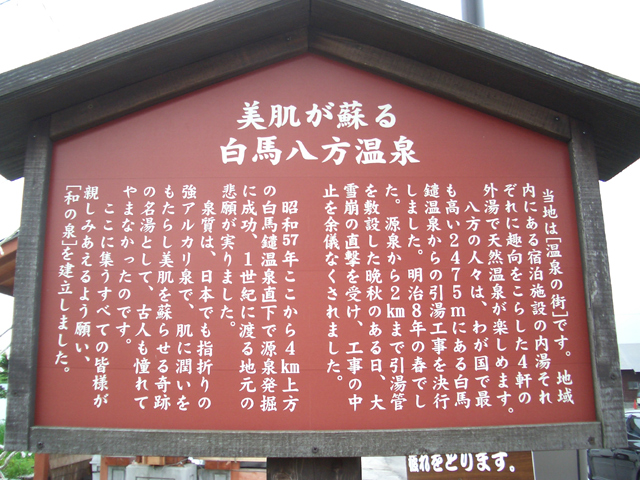 美肌が蘇る
白馬八方温泉
当地は［温泉の街］です。地域
内にある宿泊施設の内湯それ
ぞれに趣向をこらした4軒の
外湯で天然温泉が楽しめます。
八方の人々は、わが国で最
も高い2475mにある白馬
鑓温泉からの引湯工事を決行
しました。明治8年の春でし
た。源泉から2kmまで引湯管
を敷設した晩秋のある日、大
雪崩の直撃を受け、工事の中
止を余儀なくされました。
昭和57年ここから4km上方
の白馬鑓温泉直下で源泉発掘
に成功、1世紀に渡る地元の
悲願が実りました。
泉質は、日本でも指折りの
強アルカリ泉で、肌に潤いを
もたらし美肌を蘇らせる奇跡
の名湯として、古人も憧れて
やまなかったのです。
ここに集うすべての皆様が
親しみあえるよう願い、
［和の泉］を建立しました。
れをとります。